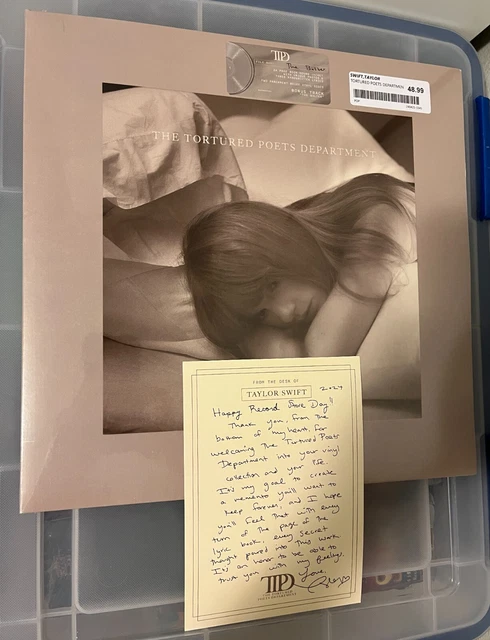 TTPD
The Bolter
SWIFT,TAYLOR
TORTURED POETS DEPARTMEN
48.99
THE TORTURED POETS DEPARTMENT
FROM THE DESK OF
TAYLOR SWIFT
2024
Happy Record Store Day!!
Thank you, from the
bottom of my heart, for
welcoming The Tortured Poets
Department into your vinyl
collection and your life.
It's my goal to create
a memento you'll want to
keep forever, and I hope
you'll feel that with every
turn of the page of the
lyric book, every secret
thought poured into this work.
It's an honor to be able to
trust you with my feelings.
Love,
TTPD
THE TORTURED
POETS DEPARTMENT